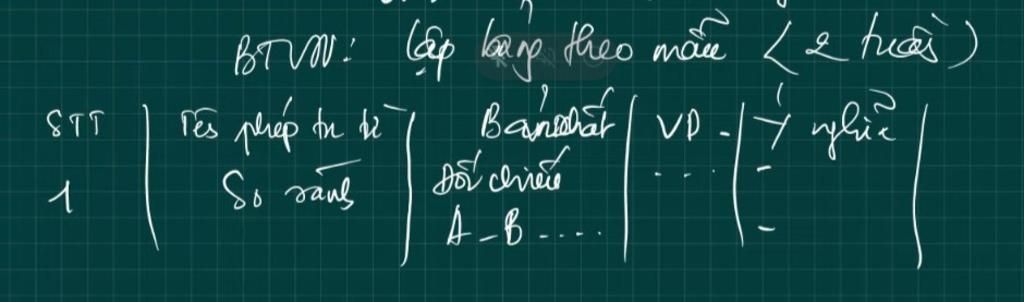 BTVN: lập bảng theo mẫu (2 tuần)
STT | Tên phép tu từ | Bản chất | VD | Ý nghĩa
1 | So sánh | Đối chiếu | .... | -
A - B ..... | -